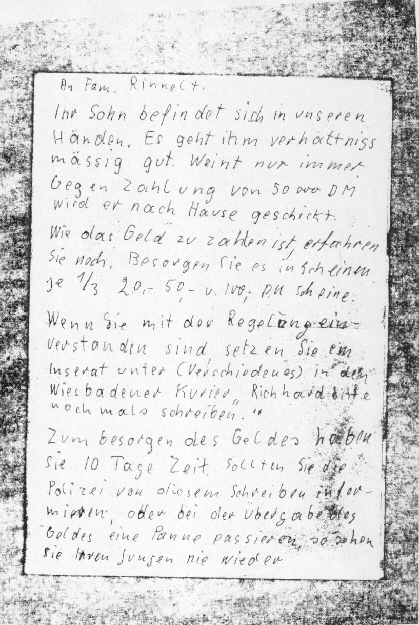 An Fam. Rinnelt.
Ihr Sohn befindet sich in unseren
Händen. Es geht ihm verhältnigs
mässig gut. Weint nur immer
Gegen Zahlung von 50 000 DM
wird er nach Hause geschickt.
Wie das Geld zu zahlen ist, erfahren
Sie noch. Besorgen Sie es in Scheinen.
Je 1/3 20,- 50,- u. 100,- DM Scheine.
Wenn Sie mit der Regelung ein-
verstanden sind, setzen Sie ein
Inserat unter (Verschiedenes) in den
Wiesbadener Kurier „Richhard bitte
nochmals schreiben."
Zum besorgen des Geldes haben
Sie 10 Tage Zeit. Sollten Sie die
Polizei von diesem Schreiben infor-
mieren, oder bei der Übergabe des
Geldes eine Panne passieren, so sehen
Sie Ihren Jungen nie wieder